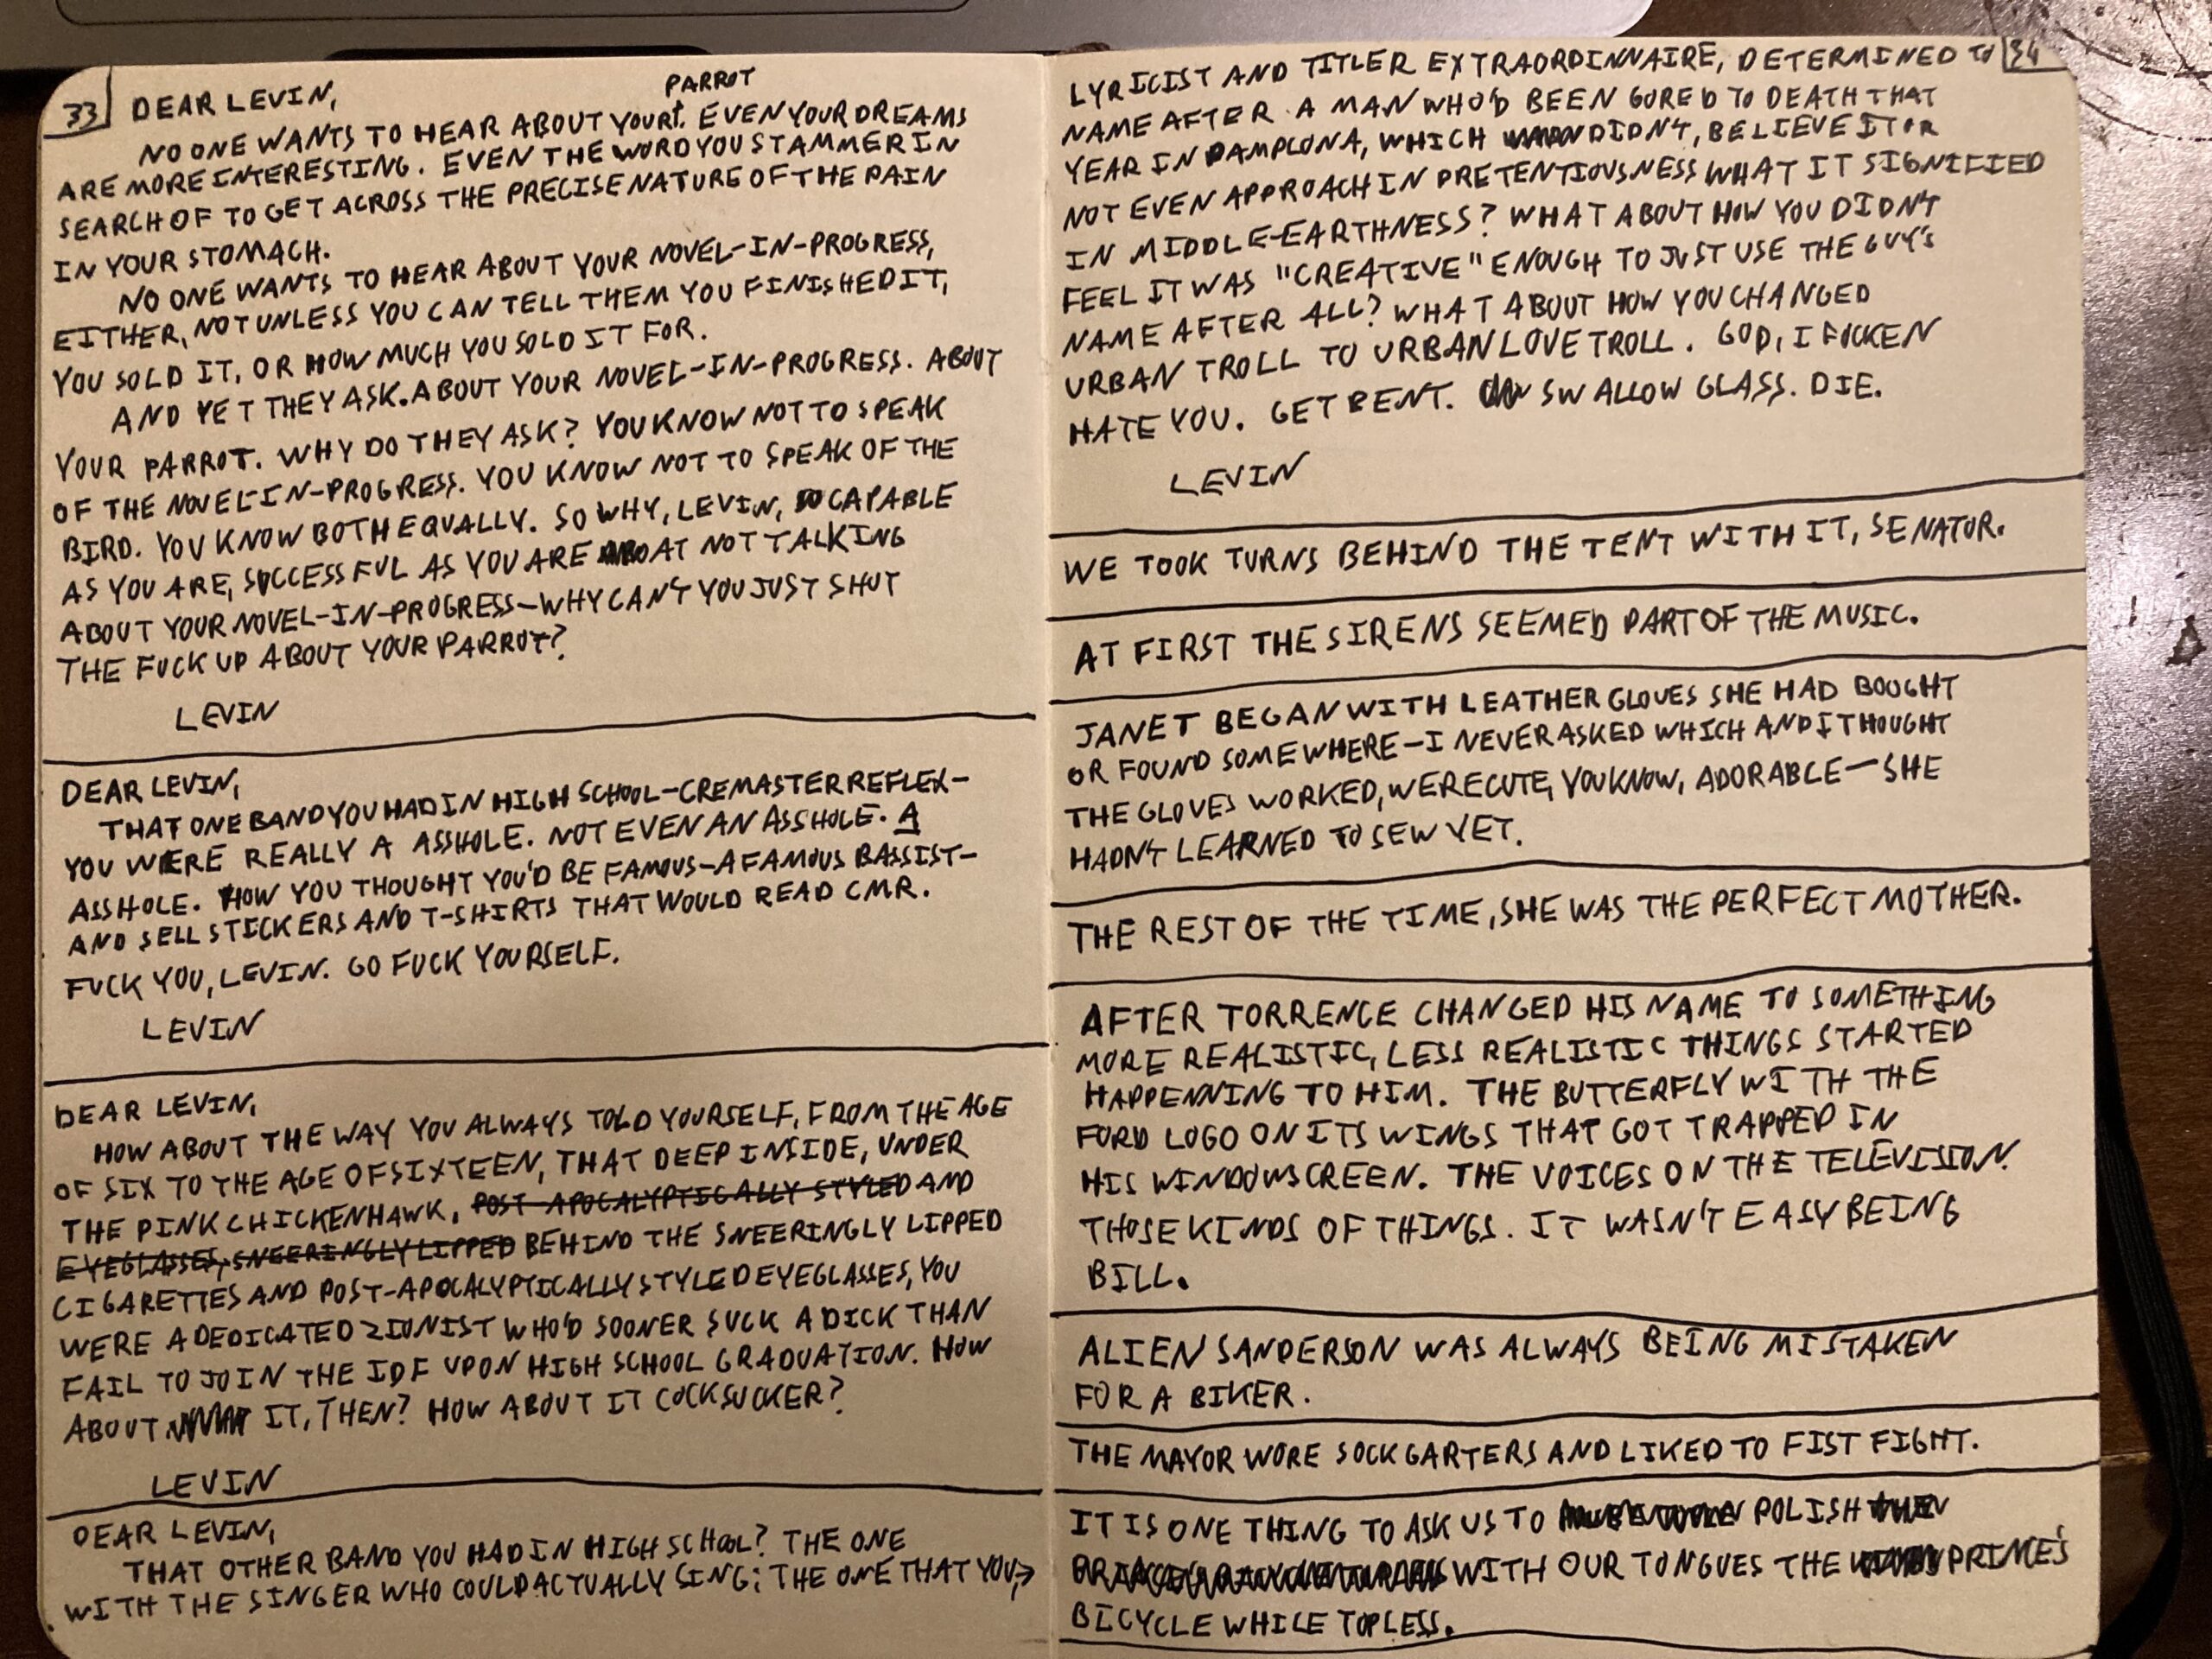 33
DEAR LEVIN,
PARROT
NO ONE WANTS TO HEAR ABOUT YOUR. EVEN YOUR DREAMS
ARE MORE INTERESTING. EVEN THE WORD YOU STAMMER IN
SEARCH OF TO GET ACROSS THE PRECISE NATURE OF THE PAIN
IN YOUR STOMACH.
NO ONE WANTS TO HEAR ABOUT YOUR NOVEL-IN-PROGRESS,
EITHER, NOT UNLESS YOU CAN TELL THEM YOU FINISHED IT,
YOU SOLD IT, OR HOW MUCH YOU SOLD IT FOR.
AND YET THEY ASK. ABOUT YOUR NOVEL-IN-PROGRESS. ABOUT
YOUR PARROT. WHY DO THEY ASK? YOU KNOW NOT TO SPEAK
OF THE NOVEL-IN-PROGRESS. YOU KNOW NOT TO SPEAK OF THE
BIRD. YOU KNOW BOTH EQUALLY. SO WHY, LEVIN, CAPABLE
AS YOU ARE, SUCCESSFUL AS YOU ARE AT NOT TALKING
ABOUT YOUR NOVEL-IN-PROGRESS—WHY CAN'T YOU JUST SHUT
THE FUCK UP ABOUT YOUR PARROT?
LEVIN
DEAR LEVIN,
THAT ONE BAND YOU HAD IN HIGH SCHOOL—CREMASTER REFLEX—
YOU WERE REALLY A ASSHOLE. NOT EVEN AN ASSHOLE. A
ASSHOLE. HOW YOU THOUGHT YOU'D BE FAMOUS—A FAMOUS BASSIST—
AND SELL STICKERS AND T-SHIRTS THAT WOULD READ CMR.
FUCK YOU, LEVIN. GO FUCK YOURSELF.
LEVIN
DEAR LEVIN,
HOW ABOUT THE WAY YOU ALWAYS TOLD YOURSELF, FROM THE AGE
OF SIX TO THE AGE OF SIXTEEN, THAT DEEP INSIDE, UNDER
THE PINK CHICKENHAWK, POST-APOCALYPTICALLY STYLED AND
EYEGLASSES, SNEERINGLY LIPPED BEHIND THE SNEERINGLY LIPPED
CIGARETTES AND POST-APOCALYPTICALLY STYLED EYEGLASSES, YOU
WERE A DEDICATED ZIONIST WHO'D SOONER SUCK A DICK THAN
FAIL TO JOIN THE IDF UPON HIGH SCHOOL GRADUATION. HOW
ABOUT IT, THEN? HOW ABOUT IT COCKSUCKER?
LEVIN
DEAR LEVIN,
THAT OTHER BAND YOU HAD IN HIGH SCHOOL? THE ONE
WITH THE SINGER WHO COULD ACTUALLY SING; THE ONE THAT YOU,→
34
LYRICIST AND TITLER EXTRAORDINNAIRE, DETERMINED TO
NAME AFTER A MAN WHO'D BEEN GORED TO DEATH THAT
YEAR IN PAMPLONA, WHICH DIDN'T, BELIEVE IT OR
NOT EVEN APPROACH IN PRETENTIOUSNESS WHAT IT SIGNIFIED
IN MIDDLE-EARTHNESS? WHAT ABOUT HOW YOU DIDN'T
FEEL IT WAS "CREATIVE" ENOUGH TO JUST USE THE GUY'S
NAME AFTER ALL? WHAT ABOUT HOW YOU CHANGED
URBAN TROLL TO URBAN LOVE TROLL. GOD, I FUCKEN
HATE YOU. GET BENT. SWALLOW GLASS. DIE.
LEVIN
WE TOOK TURNS BEHIND THE TENT WITH IT, SENATOR.
AT FIRST THE SIRENS SEEMED PART OF THE MUSIC.
JANET BEGAN WITH LEATHER GLOVES SHE HAD BOUGHT
OR FOUND SOMEWHERE—I NEVER ASKED WHICH AND I THOUGHT
THE GLOVES WORKED, WERE CUTE, YOU KNOW, ADORABLE—SHE
HADN'T LEARNED TO SEW YET.
THE REST OF THE TIME, SHE WAS THE PERFECT MOTHER.
AFTER TORRENCE CHANGED HIS NAME TO SOMETHING
MORE REALISTIC, LESS REALISTIC THINGS STARTED
HAPPENNING TO HIM. THE BUTTERFLY WITH THE
FORD LOGO ON ITS WINGS THAT GOT TRAPPED IN
HIS WINDOWSCREEN. THE VOICES ON THE TELEVISION.
THOSE KINDS OF THINGS. IT WASN'T EASY BEING
BILL.
ALIEN SANDERSON WAS ALWAYS BEING MISTAKEN
FOR A BIKER.
THE MAYOR WORE SOCK GARTERS AND LIKED TO FIST FIGHT.
IT IS ONE THING TO ASK US TO POLISH
WITH OUR TONGUES THE PRIME'S
BICYCLE WHILE TOPLESS.